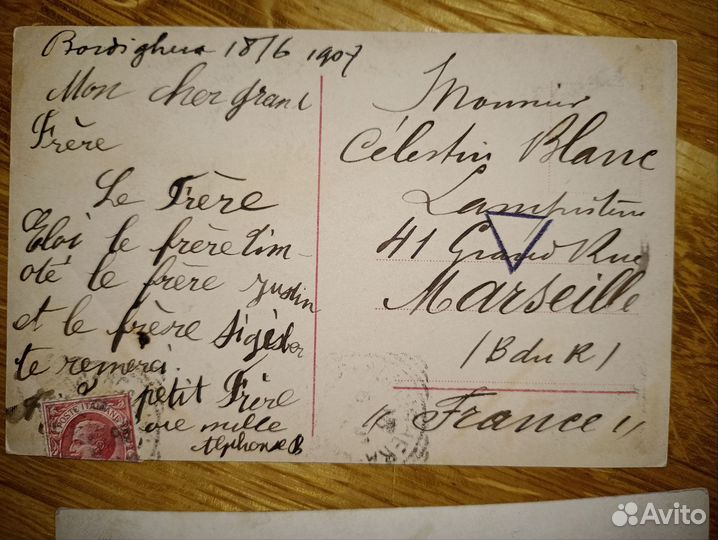 Bordighera 18/6 1907
Mon cher grand
Frère
Le Frère
Eloi le frère Tim-
oté le frère Justin
et le frère Sigisber
te remerci.
petit Frère
mille
Alphonse B
POSTE ITALIANE
Monsieur
Célestin Blanc
Lampiste
41 Grand Rue
Marseille
(B du R)
"France"
Avito